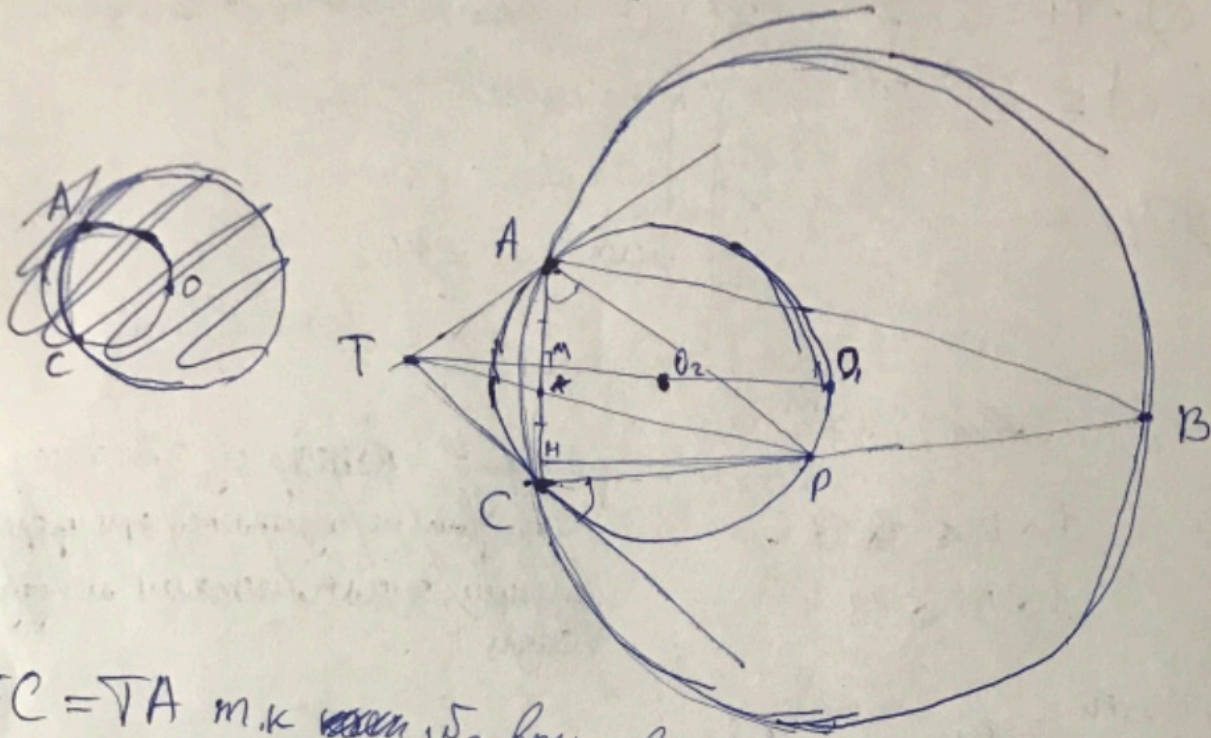 A
O
C
A
T
M
K
H
C
O₂
O₁
P
B
TC = TA т.к